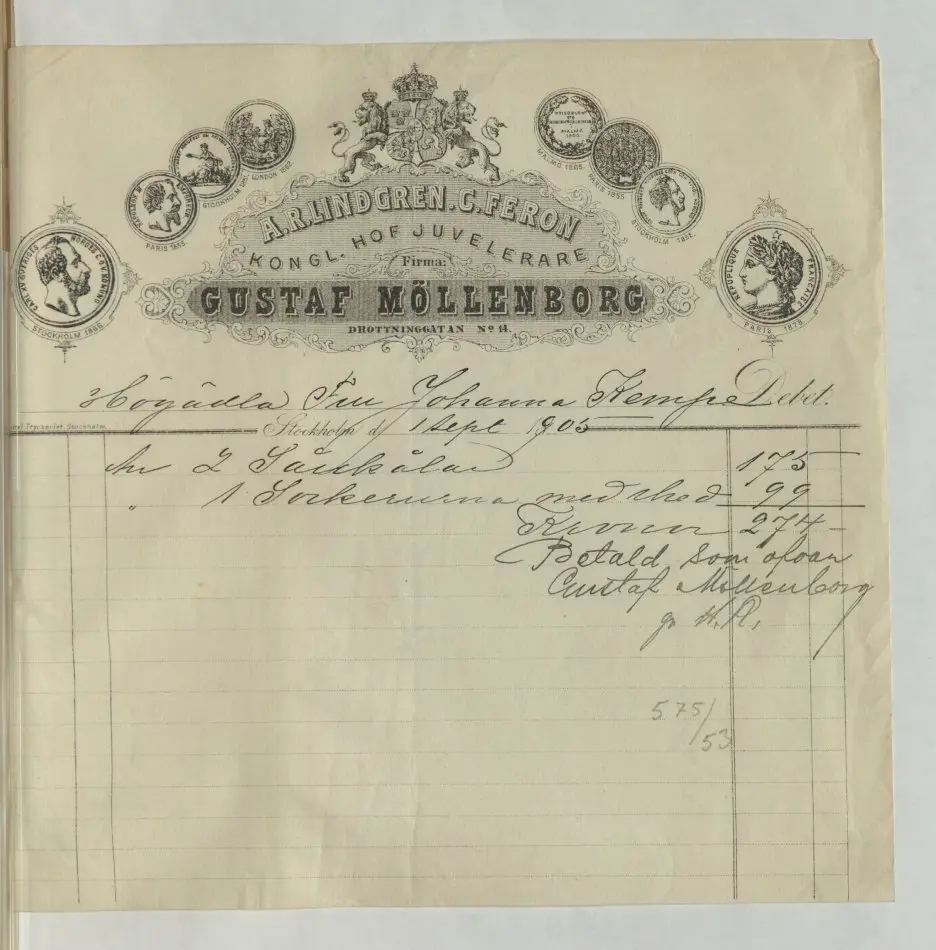 A. R. LINDGREN. C. FERON
KONGL. HOF JUVELERARE
Firma:
GUSTAF MÖLLENBORG
DROTTNINGGATAN No 14.
STOCKHOLM 1866.
PARIS 1855.
LONDON 1862.
MALMÖ 1865.
PARIS 1855
STOCKHOLM
RÉPUBLIQUE FRANÇAISE
PARIS 1878.
Högädla Fru Johanna Kempe Debet.
Tryckeriet. Stockholm.
Stockholm d. 1 Sept 1905
An 2 Såsskålar 175
" 1 Sockerurna med sked 99
Kronor 274 —
Betald som ofvan
Gustaf Möllenborg
gm
575/53